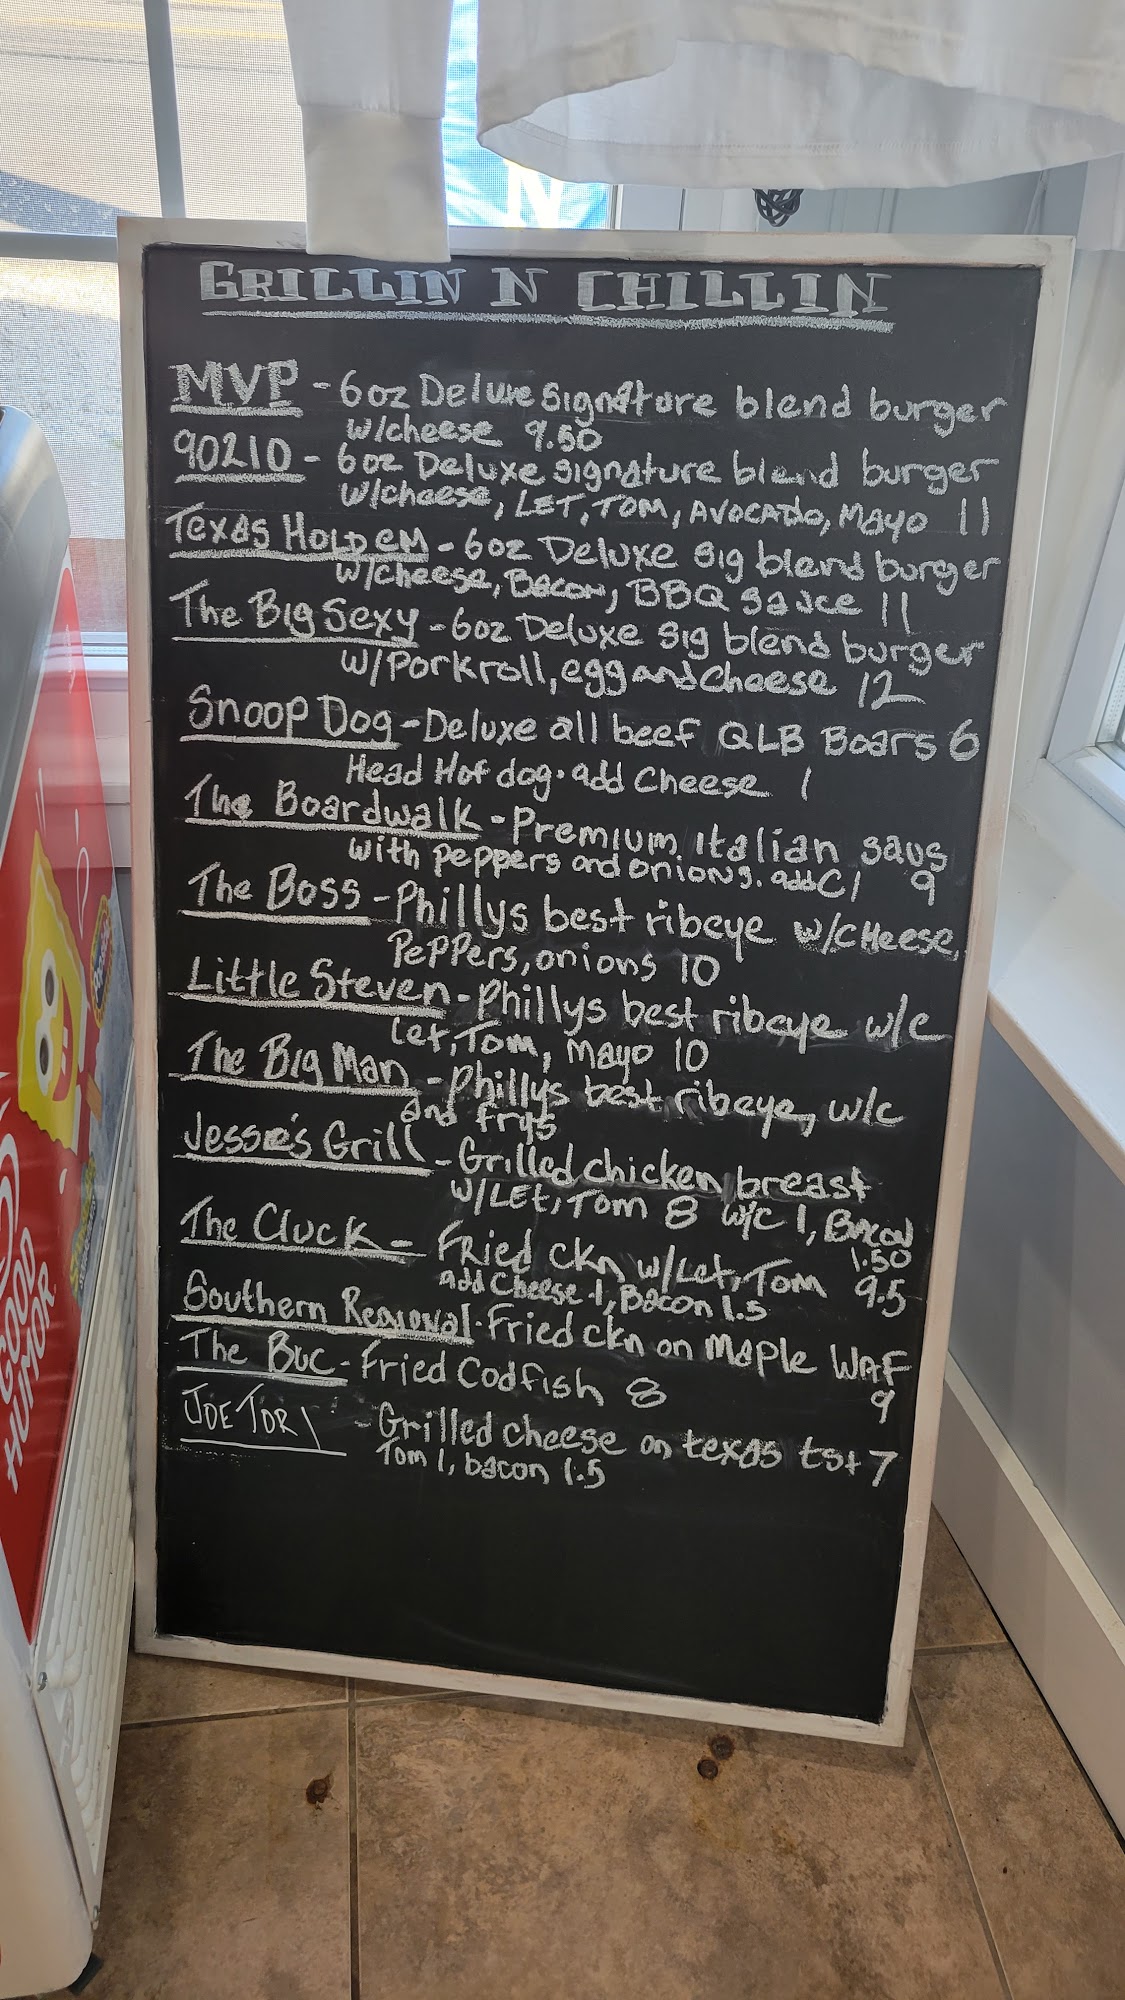 GRILLIN N CHILLIN
MVP - 6oz Deluxe signature blend burger
w/cheese 9.50
90210 - 6oz Deluxe signature blend burger
w/cheese, LET, TOM, AVOCADO, Mayo 11
Texas Holdem - 6oz Deluxe sig blend burger
w/cheese, Bacon, BBQ sauce 11
The Big Sexy - 6oz Deluxe sig blend burger
w/Porkroll, egg and cheese 12
Snoop Dog - Deluxe all beef QLB Boars 6
Head Hot dog. add Cheese 1
The Boardwalk - Premium Italian saus
with peppers and onions. add C 1 9
The Boss - Phillys best ribeye w/cHeese,
Peppers, onions 10
Little Steven - Phillys best ribeye w/c
Let, Tom, Mayo 10
The Big Man - Phillys best ribeye, w/c
and frys
Jesse's Grill - Grilled chicken breast
w/LEt, Tom 8 w/c 1, Bacon
1.50
The Cluck - Fried ckn w/Let, Tom 9.5
add Cheese 1, Bacon 1.5
Southern - Fried ckn on Maple WAF
9
The Buc - Fried Codfish 8
JOE TORI - Grilled cheese on texas tst 7
Tom 1, bacon 1.5
GOOD
HUMOR